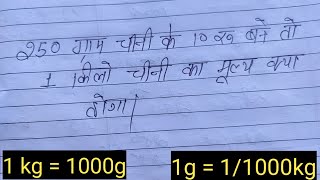 250 ग्राम चीनी के 10 रू बने तो
1 किलो चीनी का मूल्य क्या
होगा।
1 kg = 1000g
1g = 1/1000kg